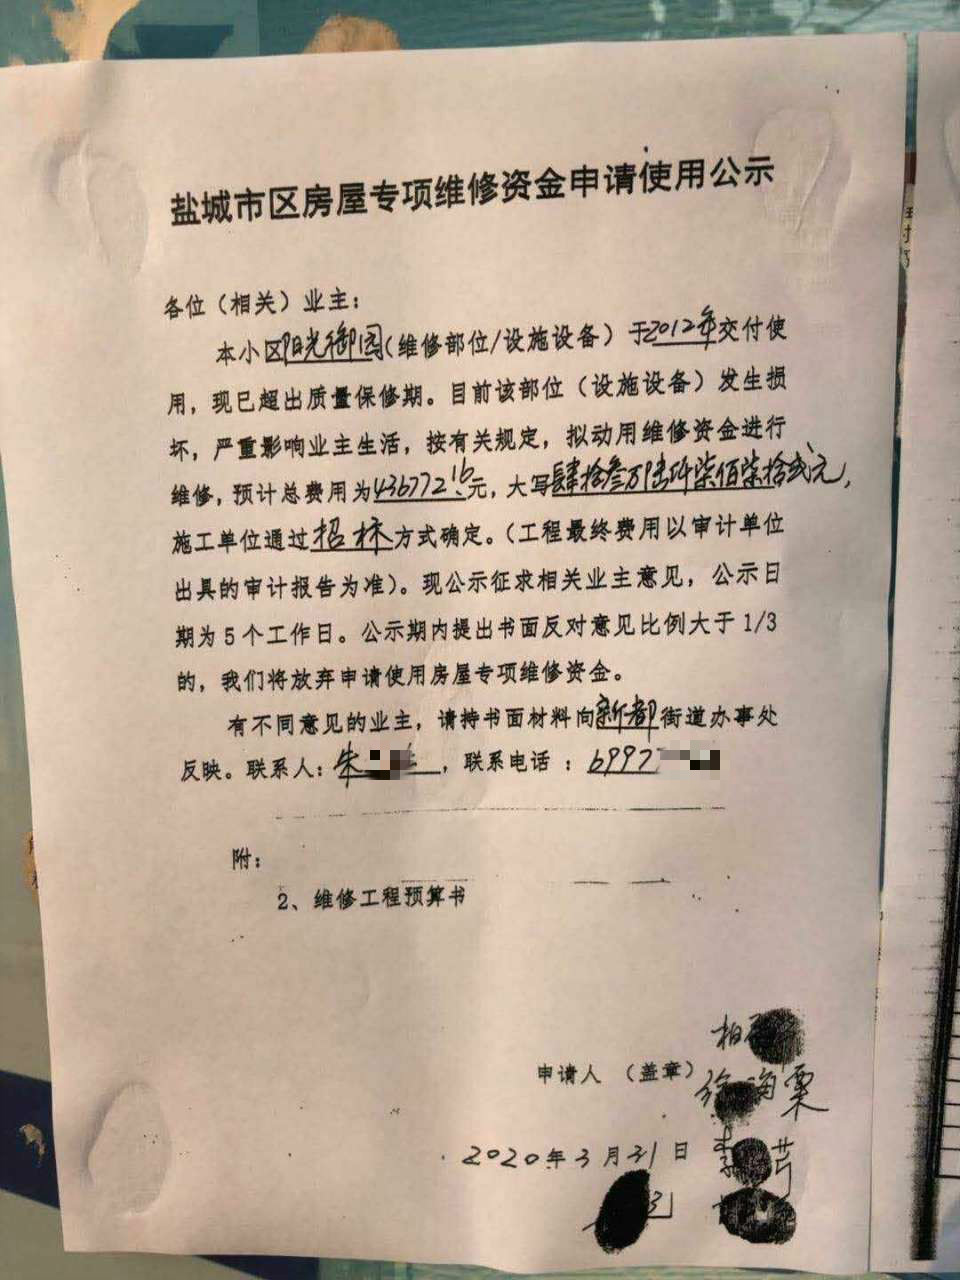 盐城市区房屋专项维修资金申请使用公示
各位（相关）业主：
本小区阳光御园（维修部位/设施设备）于2012年交付使
用，现已超出质量保修期。目前该部位（设施设备）发生损
坏，严重影响业主生活，按有关规定，拟动用维修资金进行
维修，预计总费用为436772.16元，大写肆拾叁万陆仟柒佰柒拾贰元，
施工单位通过招标方式确定。（工程最终费用以审计单位
出具的审计报告为准）。现公示征求相关业主意见，公示日
期为5个工作日。公示期内提出书面反对意见比例大于1/3
的，我们将放弃申请使用房屋专项维修资金。
有不同意见的业主，请持书面材料向新都街道办事处
反映。联系人：朱，联系电话：6997
附：
2、维修工程预算书
柏
申请人（盖章）
2020年3月31日